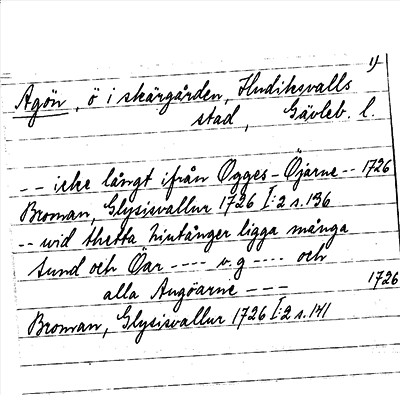 1)
Agön, ö i skärgården, Hudiksvalls
stad, Gävleb. l.
-- icke långt ifrån Ogges-Öjarne -- 1726
Broman, Glysisvallur 1726 I:2 s. 136
-- wid thetta hiutånger ligga många
sund och Öar ---- v. g ---- och
alla Angöarne --- 1726
Broman, Glysisvallur 1726 I:2 s. 141